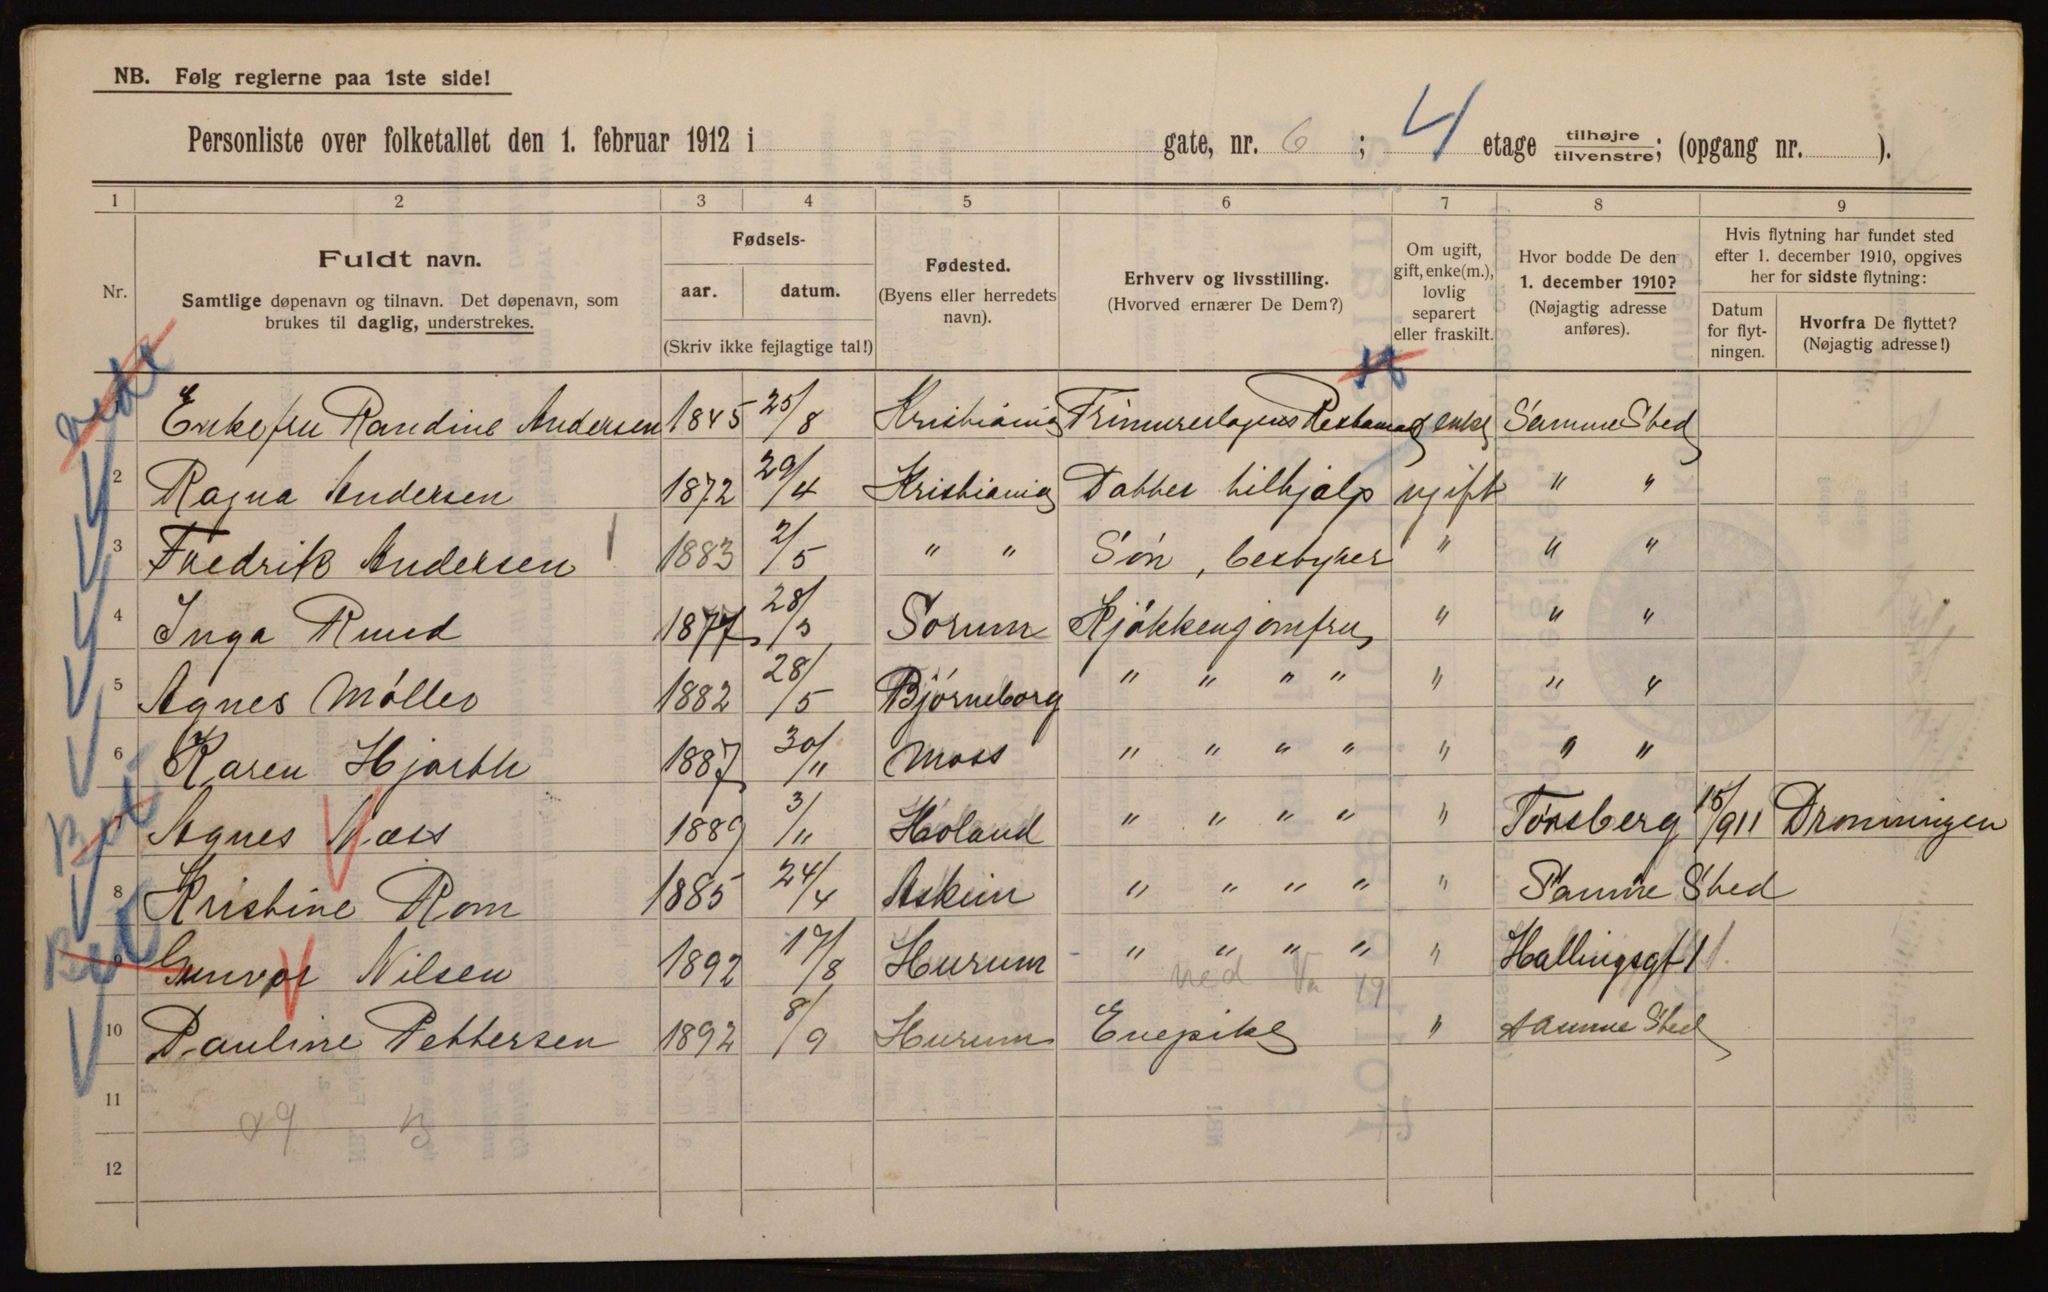 NB. Følg reglerne paa 1ste side!
Personliste over folketallet den 1. februar 1912 i gate, nr. 6 ; 4 etage tilhøjre/tilvenstre; (opgang nr. ).
1 2 3 4 5 6 7 8 9
Nr.
Fuldt navn.
Samtlige døpenavn og tilnavn. Det døpenavn, som
brukes til daglig, understrekes.
Fødsels-
aar. datum.
(Skriv ikke fejlagtige tal!)
Fødested.
(Byens eller herredets
navn).
Erhverv og livsstilling.
(Hvorved ernærer De Dem?)
Om ugift,
gift, enke(m.),
lovlig
separert
eller fraskilt.
Hvor bodde De den
1. december 1910?
(Nøjagtig adresse
anføres).
Hvis flytning har fundet sted
efter 1. december 1910, opgives
her for sidste flytning:
Datum
for flyt-
ningen.
Hvorfra De flyttet?
(Nøjagtig adresse!)
Enkefru Randine Andersen 1845 25/8 Kristiania enke Samme Sted
2 Ragna Andersen 1872 29/4 Kristiania Datter tilhjælp ugift " "
3 Fredrik Andersen 1883 2/5 " " Søn, bestyrer " " "
4 Inga Ruud 1877 28/3 Sørum Kjøkkenjomfru " " "
5 Agnes Møller 1882 28/5 Bjørneborg " " " " " " "
6 Karen Hjorth 1887 30/11 Moss " " " " " " "
7 Agnes Næss 1889 3/11 Høland " " " " " Tønsberg 15/911 Dronningen
8 Kristine Rom 1885 24/4 Askim " " " " " Samme Sted
9 Gunvor Nilsen 1892 17/8 Hurum " " " " " Hallingsgt 1
10 Pauline Pettersen 1892 8/9 Hurum Enepike " samme Sted
11
12